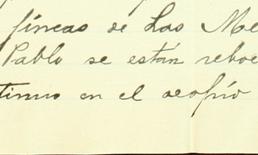 fincas de Las Me
Pablo se están reho
tinuo en el acopio